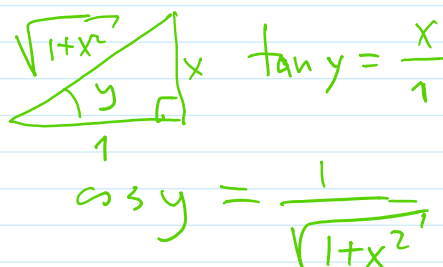 √1+x²
x
y
1
tan y = x/1
cos y = 1/√1+x²